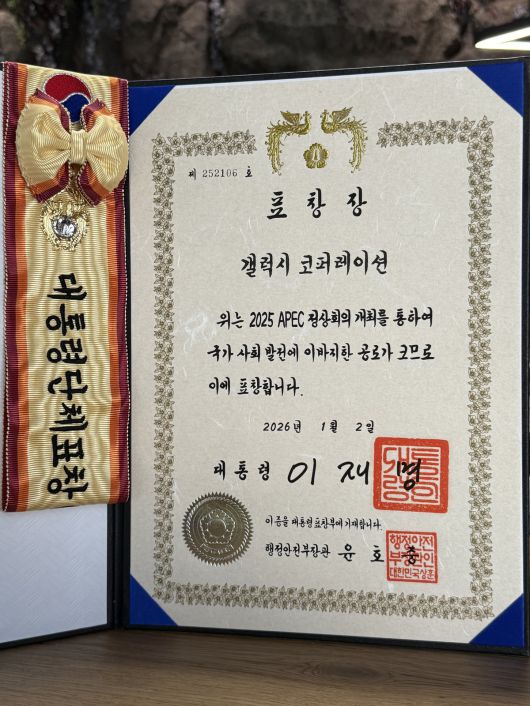 대통령단체표창
제 252106 호
표창장
갤럭시 코퍼레이션
위는 2025 APEC 정상회의 개최를 통하여
국가 사회 발전에 이바지한 공로가 크므로
이에 표창합니다.
2026년 1월 2일
대통령 이재명
이 증을 대통령표창부에 기재합니다.
행정안전부장관 윤호중
행정안전
부장관인
대한민국상훈